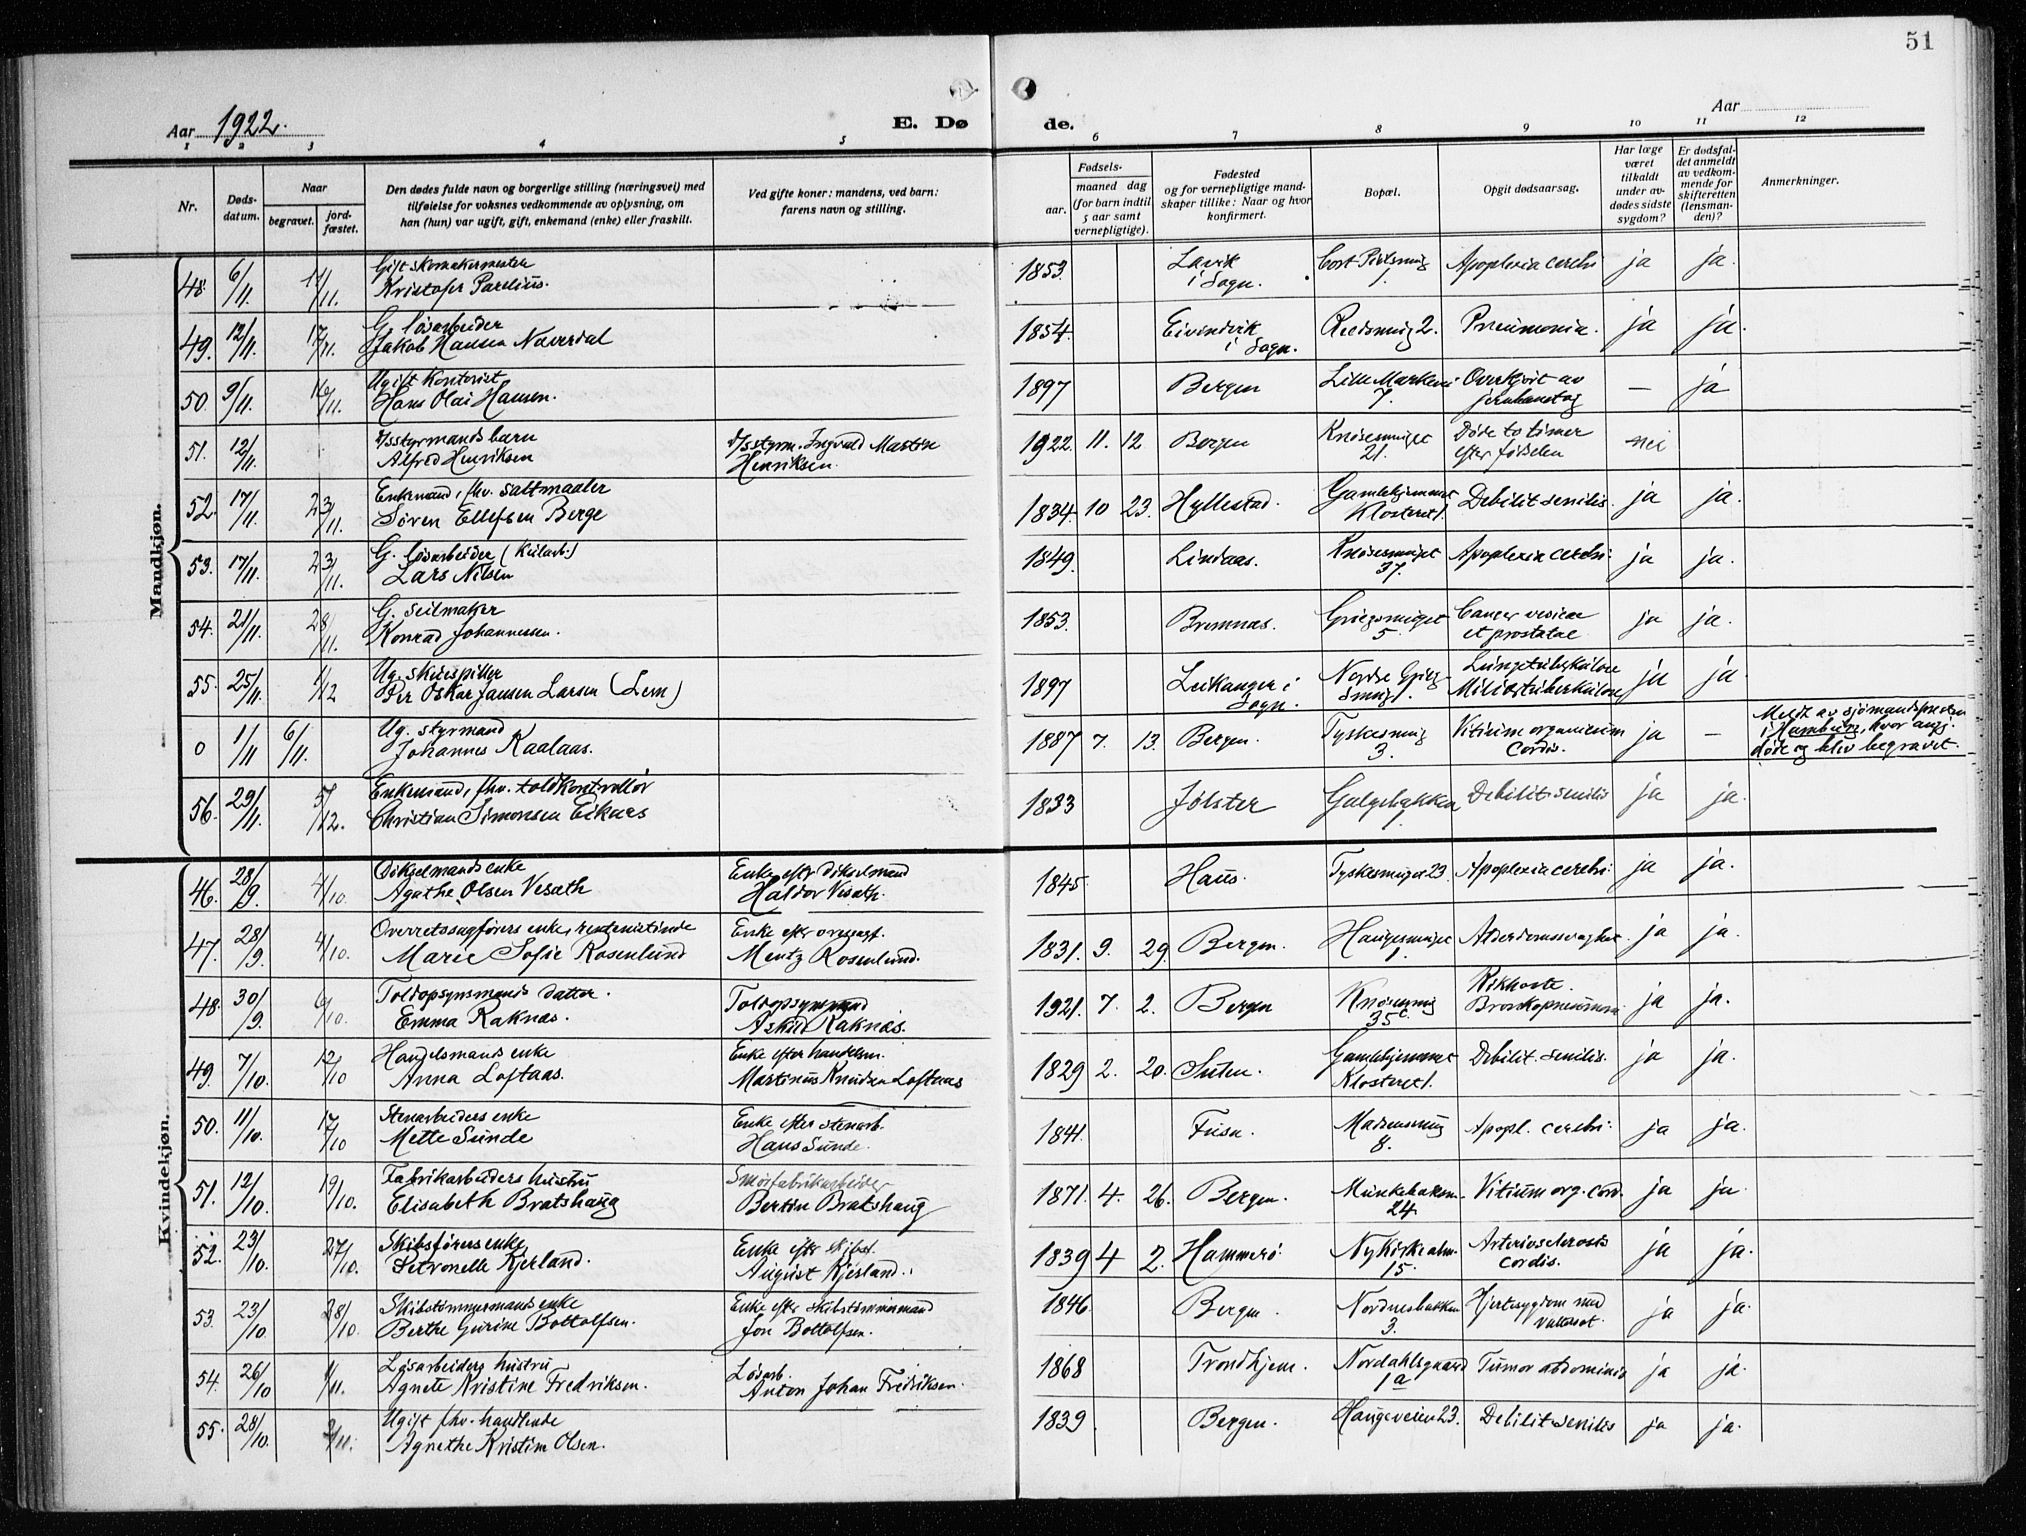 51
Aar 1922.
E. Døde.
Aar
1 2 3 4 5 6 7 8 9 10 11 12
Nr.
Døds-
datum.
Naar
begravet.
jord-
fæstet.
Den dødes fulde navn og borgerlige stilling (næringsvei) med
tilføielse for voksnes vedkommende av oplysning, om
han (hun) var ugift, gift, enkemand (enke) eller fraskilt.
Ved gifte koner: mandens, ved barn:
farens navn og stilling.
Fødsels-
aar.
maaned dag
(for barn indtil
5 aar samt
vernepligtige).
Fødested
og for vernepligtige mand-
skaper tillike: Naar og hvor
konfirmert.
Bopæl.
Opgit dødsaarsag.
Har læge
været
tilkaldt
under av-
dødes sidste
sygdom?
Er dødsfal-
det anmeldt
av vedkom-
mende for
skifteretten
(lensman-
den)?
Anmerkninger.
Mandkjøn.
48. 6/11. 11/11. Gift skomakermester
Kristofer Parelius. 1853. Lavik
i Sogn. 1. Apoplexia cerebri ja ja.
49. 12/11. 17/11. G. løsarbeider
Jakob Hansen Næverdal 1854. Eivindvik
i Sogn. 2. Pneumonia. ja ja.
50. 9/11. 16/11. Ugift kontorist
Hans Olai Hansen. 1897 Bergen Lille Markevei
7. Overkjørt av
jernbanetog — ja
51. 12/11. d/sstyrmands barn
Alfred Henriksen d/sstyrm. Ingvald Martin
Henriksen. 1922. 11. 12 Bergen Knøsesmuget
21. Døde to timer
efter fødselen nei
52. 17/11. 23/11. Enkemand, fhv. saltmaaler
Søren Ellefsen Berge 1834. 10 23. Hyllestad. Gamlehjemmet
Klosteret 1. Debilit. senilis. ja ja.
53. 17/11. 23/11. G. løsarbeider (Kularb.)
Lars Nilsen 1849. Lindaas. Knøsesmuget
37. Apoplexia cerebri ja ja.
54. 21/11. 28/11. G. seilmaker
Konrad Johannessen. 1853. Bremnes. Griegsmuget
5. Cancer vesicae
et prostatae ja ja.
55. 25/11. 1/12 Ug. skuespiller
Per Oskar Jansen Larsen (Lem) 1897 Leikanger i
Sogn. Nordre Grieg-
smug 1. Lungetuberkulose
Miliærtuberkulose ja ja.
0 1/11 6/11. Ug. styrmand
Johannes Kaalaas. 1887 7. 13. Bergen. Tyskesmug
3. Vitium organicum
Cordis. ja — Meldt av sjømandspresten
i Hamburg, hvor angj.
døde og blev begravet.
56. 29/11. 5/12. Enkemand, fhv. toldkontrollør
Christian Simonsen Eiknes 1833 Jølster Galgebakken
1 Debilit. senilis ja ja.
Kvindekjøn.
46. 28/9. 4/10. Dikselmands enke
Agathe Olsen Vesøth Enke efter dikselmand
Haldor Vesøth. 1845 Haus. Tyskesmuget 23. Apoplexia cerebri ja ja.
47. 28/9. 4/10. Overretssagførers enke, rentenistinde
Marie Sofie Rosenlund Enke efter overrsagf.
Mentz Rosenlund. 1831. 9. 29. Bergen. Haugesmuget
1. Alderdomssvaghet. ja ja.
48. 30/9. 6/10. Toldopsynsmands datter.
Emma Raknæs. Toldopsynsmand
Askild Raknæs. 1921. 7. 2. Bergen Knøsesmug
35c. Kikhoste.
Bronkopneumoni ja ja.
49. 7/10. 12/10 Handelsmands enke
Anna Loftaas. Enke efter handelsm.
Martinus Knudsen Loftaas 1829 2. 20. Gamlehjemmet
Klosteret 1. Debilit. senilis. ja ja.
50. 11/10. 17/10 Stenarbeiders enke
Mette Sunde Enke efter stenarb.
Hans Sunde. 1841. Fusa. Madsensmug
8. Apopl. cerebri. ja ja.
51. 12/10. 19/10. Fabrikarbeiders hustru
Elisabeth Bratshaug Smørfabrikarbeider
Bertin Bratshaug 1871. 4. 26. Bergen. Munkebakken
24. Vitium org. cord. ja ja
52. 23/10. 27/10. Skibsførers enke
Petronelle Kjerland. Enke efter skibsf.
August Kjerland. 1839 4 2. Hammerø. Nykirkealm.
15. Arteriosclerosis
cordis. ja ja.
53. 23/10. 28/10. Skibstømmermands enke
Berthe Gurine Bottolfsen. Enke efter skibstømmermand
Jon Bottolfsen. 1846. Bergen. Nordnesbakken
3. Hjertesygdom med
Vattersot. ja ja.
54. 26/10 1/11. Løsarbeiders hustru
Agnete Kristine Fredriksen. Løsarb.
Anton Johan Fredriksen. 1868 Trondhjem. Nordahlsgaard
1a Tumor abdominis ja ja.
55. 28/10. 2/11. Ugift fhv. handlende
Agnethe Kristine Olsen. 1839 Bergen. Haugeveien 23. Debilit senilis ja ja.